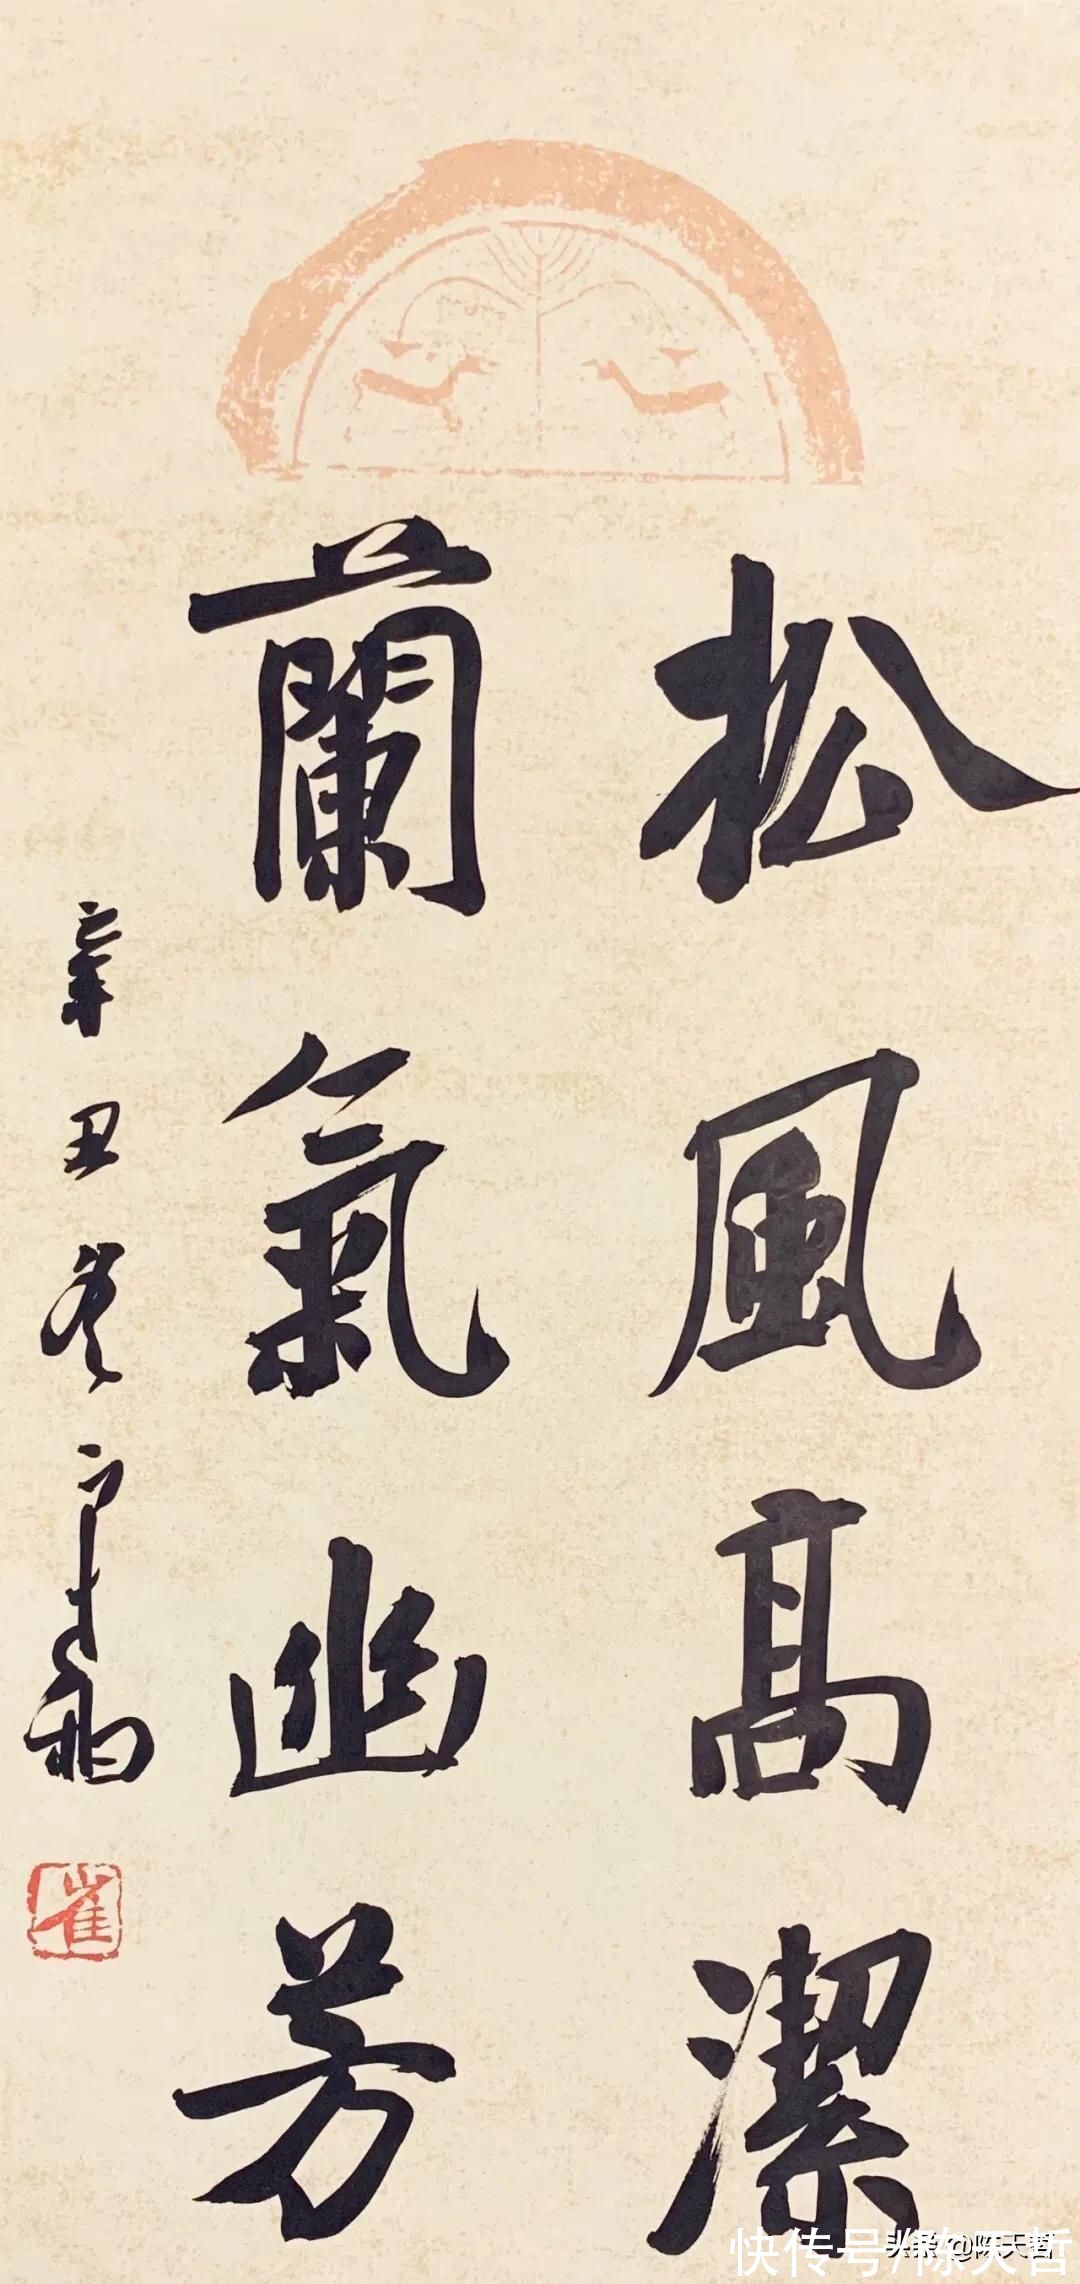 松風高潔
蘭氣幽芳
辛丑冬
崔
快传号/陈天哲
头条 @陈天哲